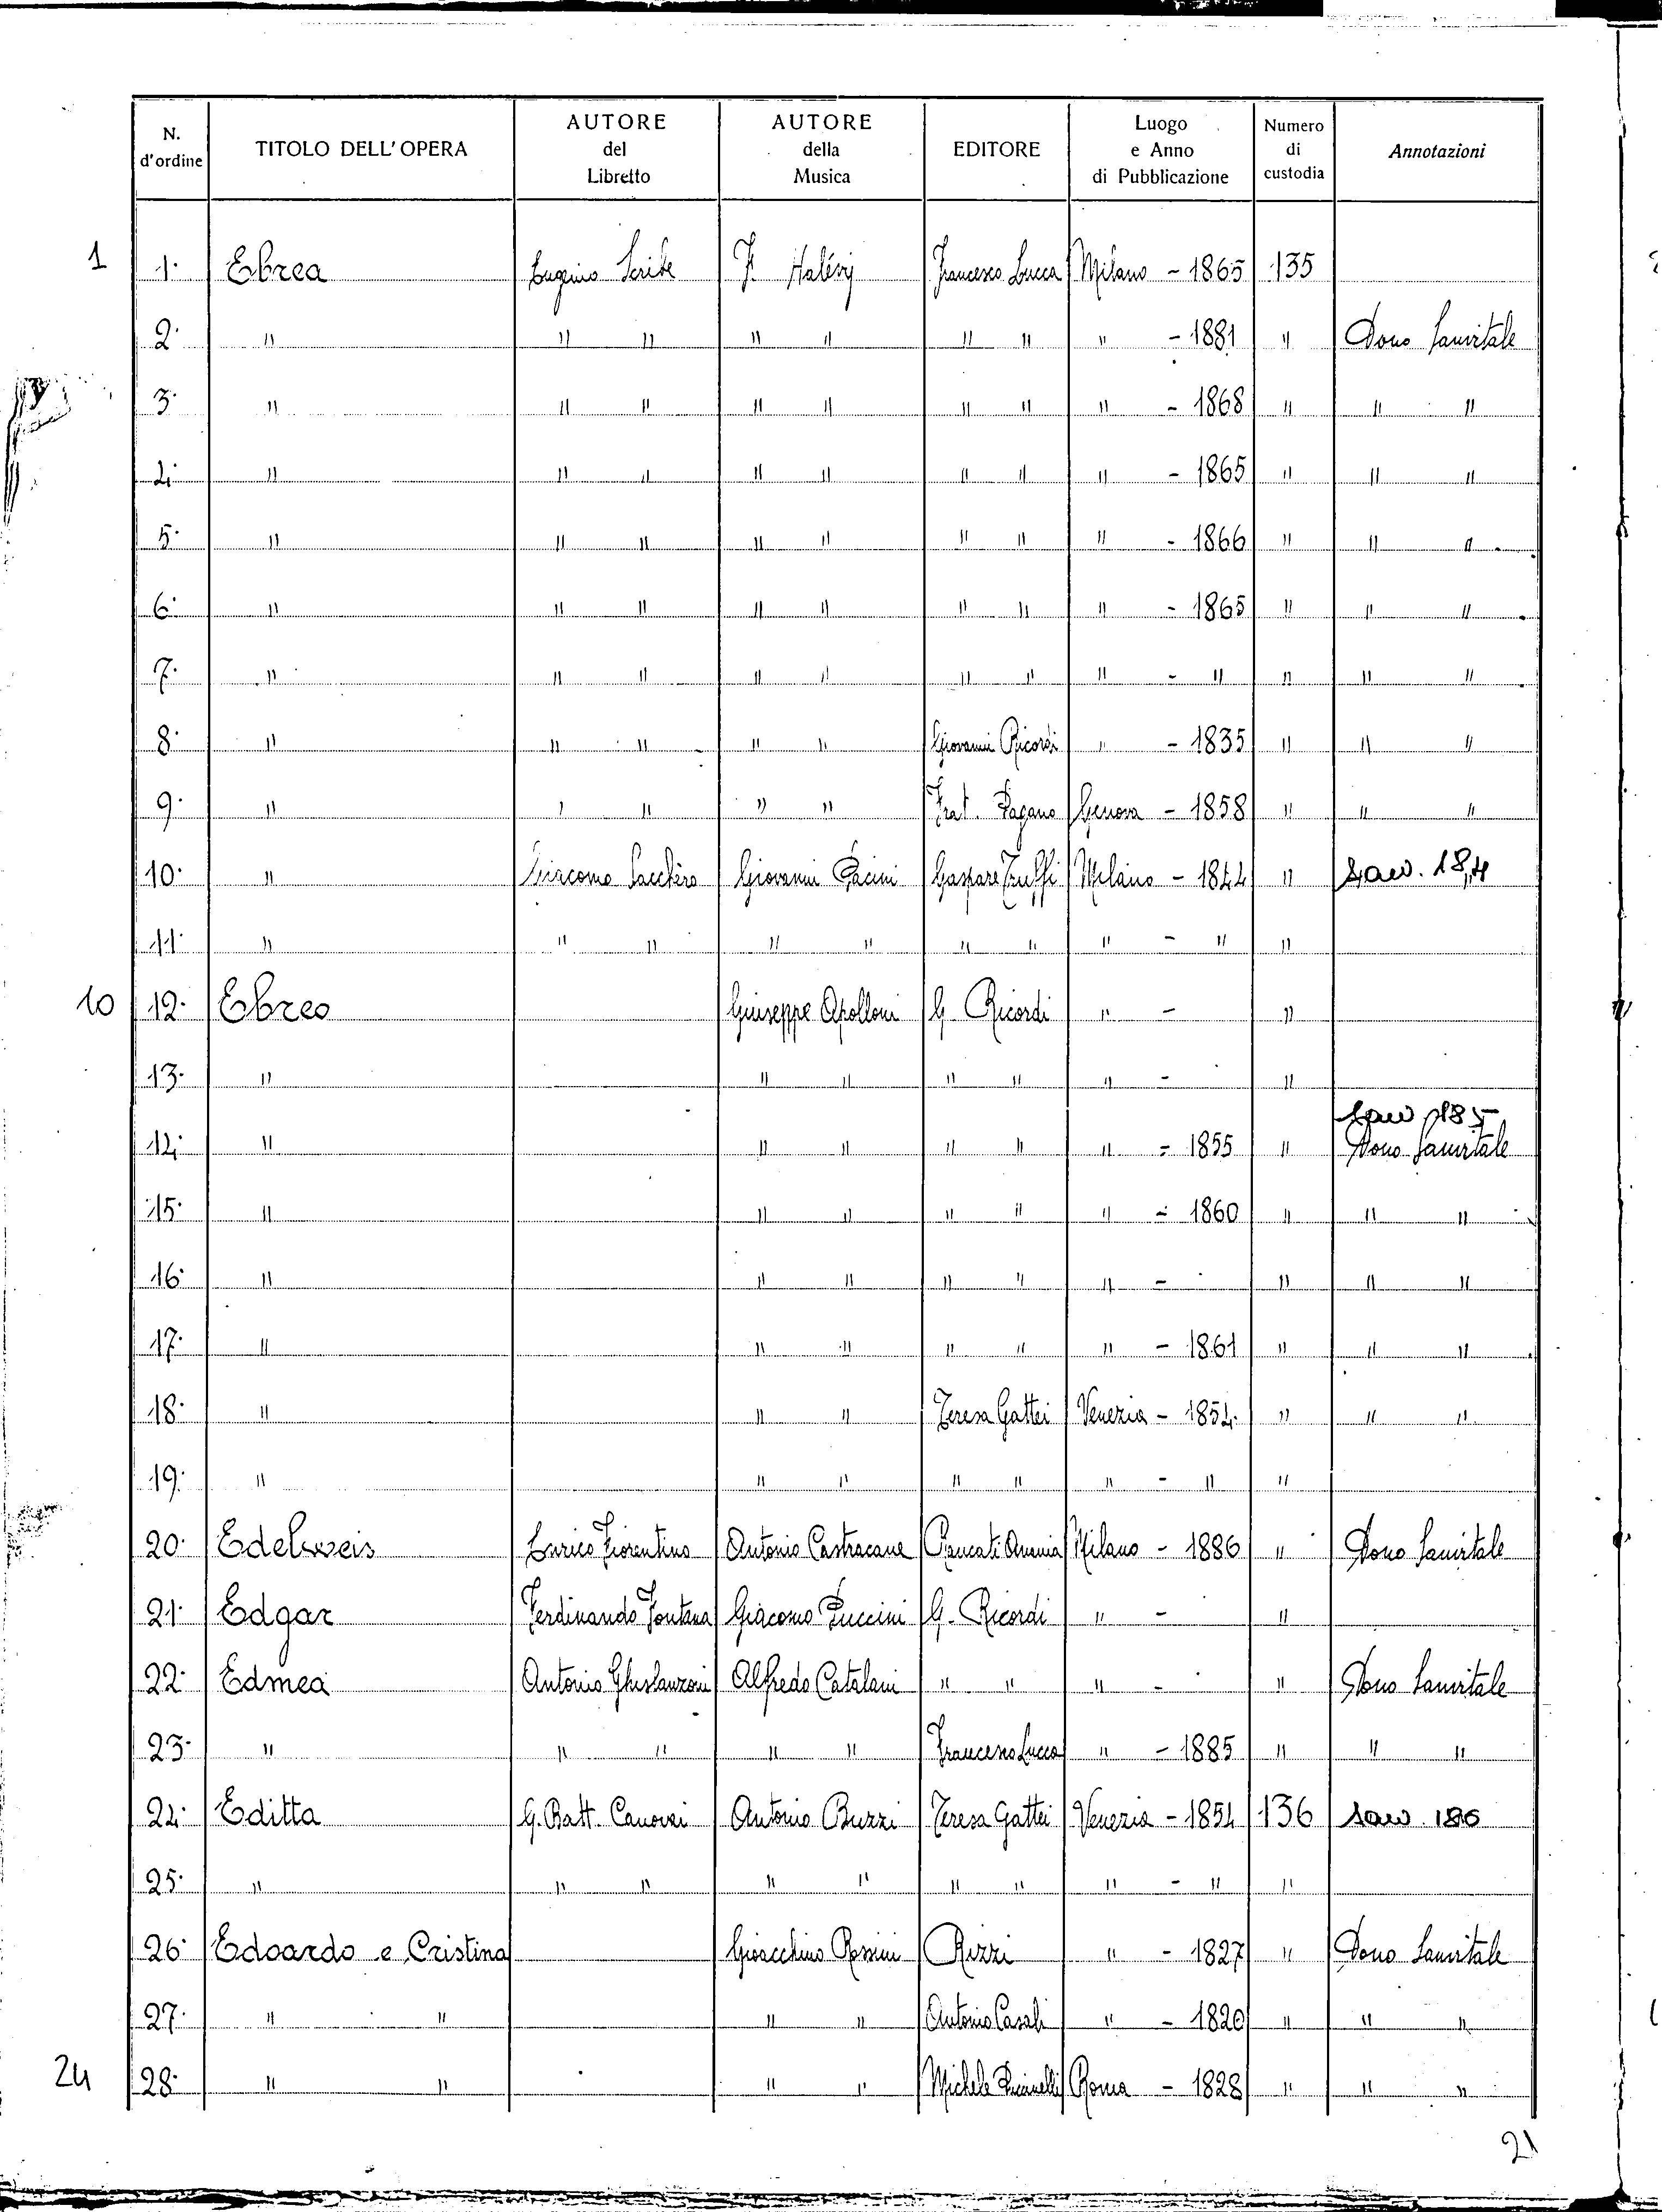 N. d'ordine | TITOLO DELL'OPERA | AUTORE del Libretto | AUTORE della Musica | EDITORE | Luogo e Anno di Pubblicazione | Numero di custodia | Annotazioni
1 1. Ebrea Eugenio Scribe F. Halévy Francesco Lucca Milano - 1865 135
2. " " " " " " " " - 1881 " Dono Sanvitale
3. " " " " " " " " - 1868 " " "
4. " " " " " " " " - 1865 " " "
5. " " " " " " " " - 1866 " " "
6. " " " " " " " " - 1865 " " "
7. " " " " " " " " - " " " "
8. " " " " " Giovanni Ricordi " - 1835 " " "
9. " " " " " Frat. Pagano Genova - 1858 " " "
10. " Giacomo Sacchèro Giovanni Pacini Gaspare Truffi Milano - 1844 "
11. " " " " " " " " - " "
10 12. Ebreo Giuseppe Apolloni G. Ricordi " - "
13. " " " " " " - "
14. " " " " " " - 1855 " Dono Sanvitale
15. " " " " " " - 1860 " " "
16. " " " " " " - " " "
17. " " " " " " - 1861 " " "
18. " " " Teresa Gattei Venezia - 1854. " " "
19. " " " " " " - " "
20. Edelweis Enrico Fiorentino Antonio Castracane Milano - 1886 " Dono Sanvitale
21. Edgar Ferdinando Fontana Giacomo Puccini G. Ricordi " - "
22. Edmea Antonio Ghislanzoni Alfredo Catalani " " " - " Dono Sanvitale
23. " " " " " Francesco Lucca " - 1885 " " "
24. Editta G. Batt. Canovai Antonio Buzzi Teresa Gattei Venezia - 1854 136 sav. 186
25. " " " " " " " " - " "
26. Edoardo e Cristina Gioacchino Rossini Rizzi " - 1827 " Dono Sanvitale
27. " " " " Antonio Casali " - 1820 " " "
24 28. " " " " Michele Puccinelli Roma - 1828 " " "
21